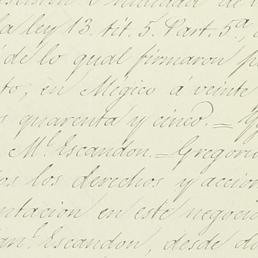 la ley 13. tit. 5. Part. 5ª
de lo qual firmaron p
to; en Mégico á veinte
s quarenta y cinco. =
M.l Escandon. = Gregorio
os los derechos y accion
ntacion en este negocio
an.l Escandon, desde